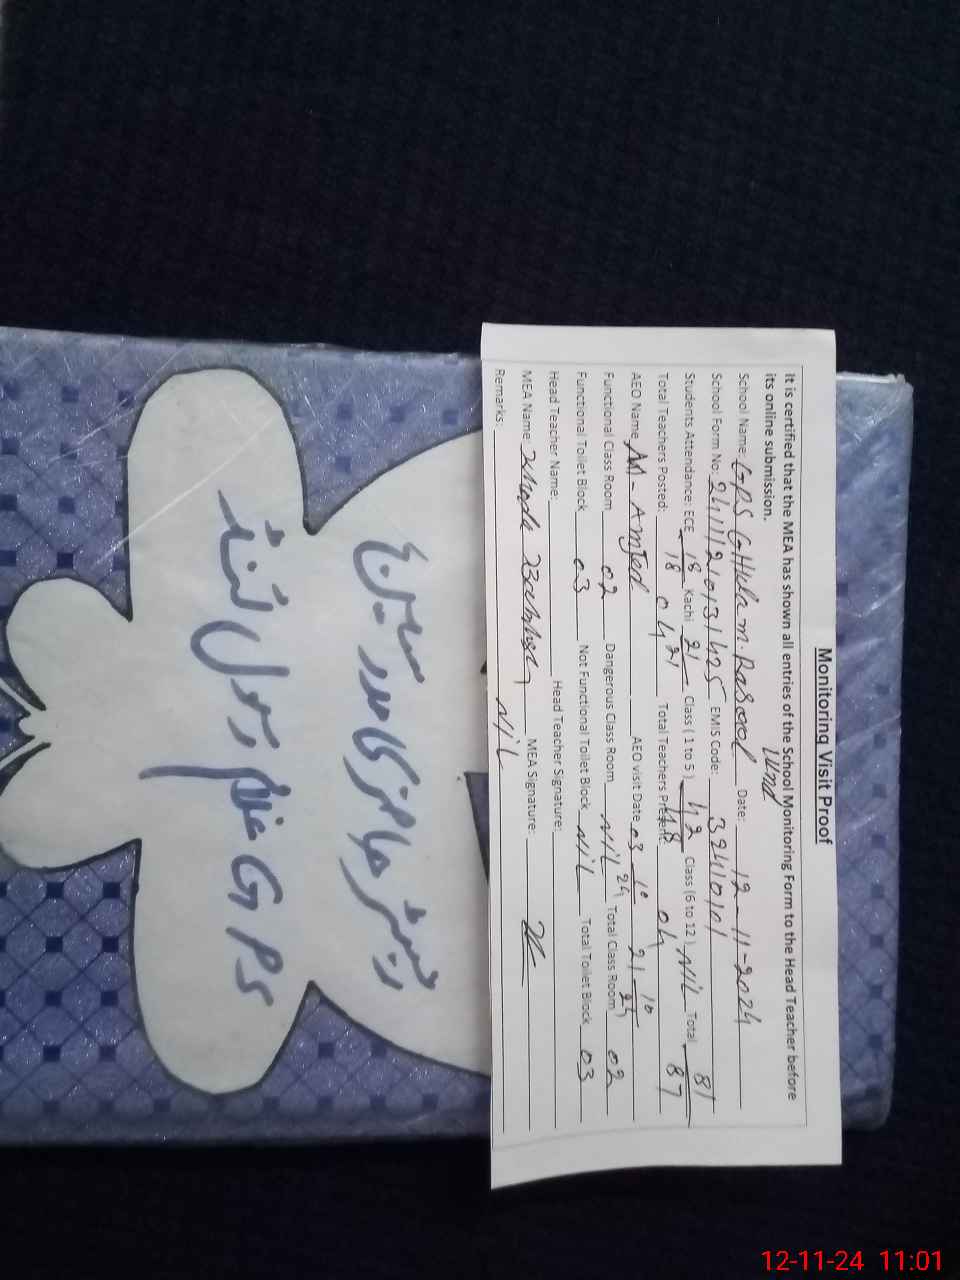 Monitoring Visit Proof
It is certified that the MEA has shown all entries of the School Monitoring Form to the Head Teacher before
its online submission.
School Name: GPS GHulam Rasool Lund Date: 12-11-2024
School Form No: EMIS Code: 32410101
Students Attendance: ECE 18/18 Kachi 21/21 Class ( 1 to 5 ) 42/48 Class (6 to 12 ) NIL Total 81/87
Total Teachers Posted: 04 Total Teachers Present: 04
AEO Name M-Amjed AEO visit Date 03 10 24 21 10 24
Functional Class Room 02 Dangerous Class Room NIL Total Class Room 02
Functional Toilet Block 03 Not Functional Toilet Block NIL Total Toilet Block 03
Head Teacher Name: Head Teacher Signature:
MEA Name: Khuda Bakhsh MEA Signature:
Remarks: NIL
رجسٹر حاضری مدرسین
GPS غلام رسول لنڈ
12-11-24 11:01